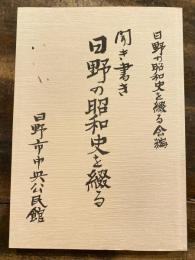 日野の昭和史を綴る会編
聞き書き
日野の昭和史を綴る
日野市中央公民館